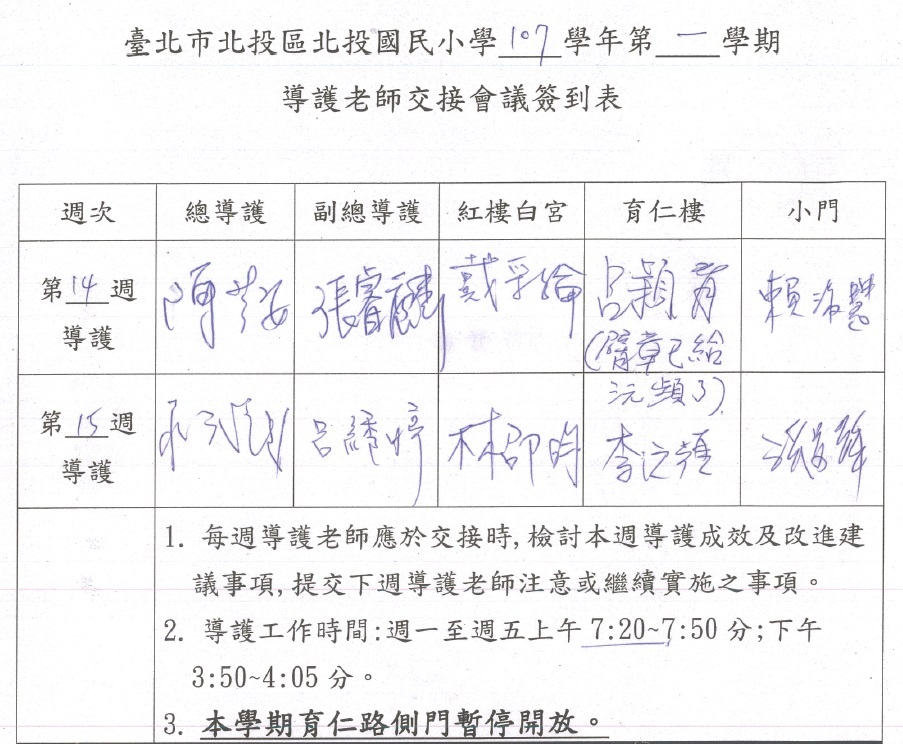 臺北市北投區北投國民小學107學年第一學期
導護老師交接會議簽到表
週次 總導護 副總導護 紅樓白宮 育仁樓 小門
第14週導護 陳 張睿麟 戴孚倫 呂穎育
(臂章已給沅頻了)
第15週導護 呂 婷 林 李沅頻
1. 每週導護老師應於交接時,檢討本週導護成效及改進建
議事項,提交下週導護老師注意或繼續實施之事項。
2. 導護工作時間:週一至週五上午 7:20~7:50 分;下午
3:50~4:05 分。
3. 本學期育仁路側門暫停開放。